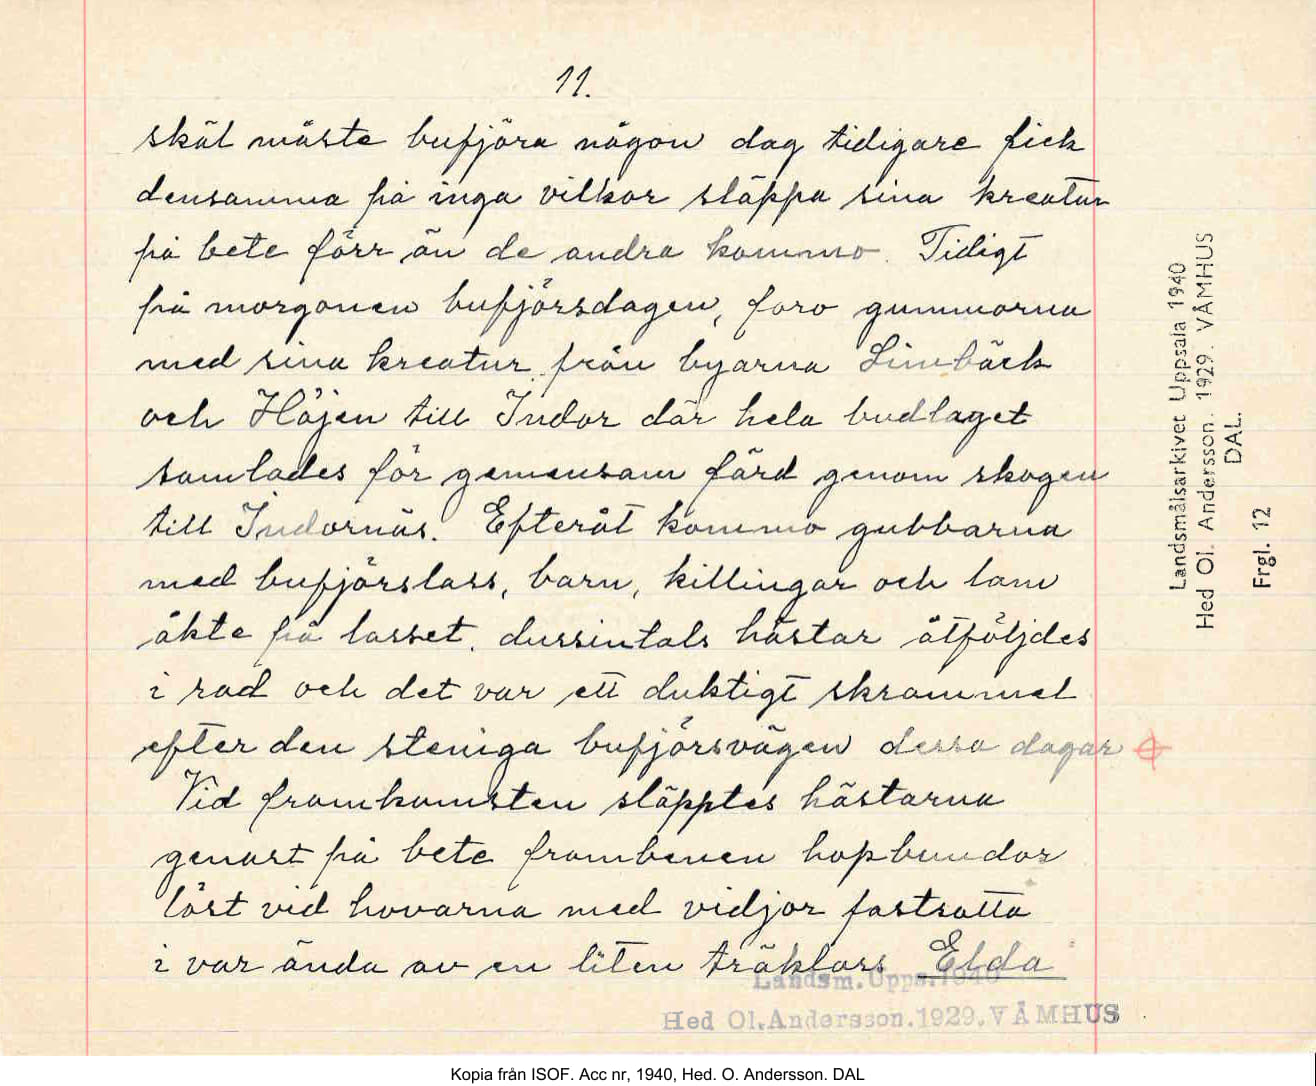 11.
skäl måste bufjöra någon dag tidigare fick
densamma på inga vilkor släppa sina kreatur
på bete förr än de andra kommo. Tidigt
på morgonen bufjörsdagen, foro gummorna
med sina kreatur från byarna Limbäck
och Höjen till Indor där hela budlaget
samlades för gemensam färd genom skogen
till Indornäs. Efteråt kommo gubbarna
med bufjörslass, barn, killingar och lam
åkte på lasset. dussintals hästar åtföljdes
i rad och det var ett duktigt skrammel
efter den steniga bufjörsvägen dessa dagar
Vid framkomsten släpptes hästarna
genast på bete frambenen hopbundor
löst vid hovarna med vidjor fastsatta
i var ända av en liten träklass Elda
Landsm.Upps.1940
Hed Ol.Andersson.1929.VÅMHUS
Landsmålsarkivet Uppsala 1940
Hed Ol. Andersson. 1929. VÅMHUS
DAL.
Frgl. 12
Kopia från ISOF. Acc nr, 1940, Hed. O. Andersson. DAL